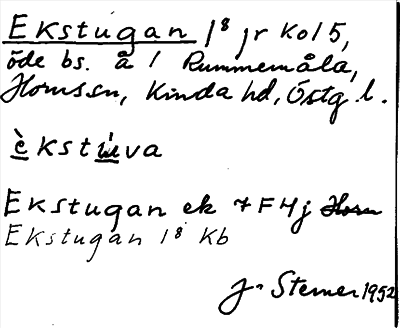 Ekstugan 1⁸ jr Kol 5,
öde bs. å 1 Rummemåla,
Hornssn, Kinda hd, Östg. l.
èkstùva
Ekstugan ek 7 F 4j Horn
Ekstugan 1⁸ Kb
Sterner 1952